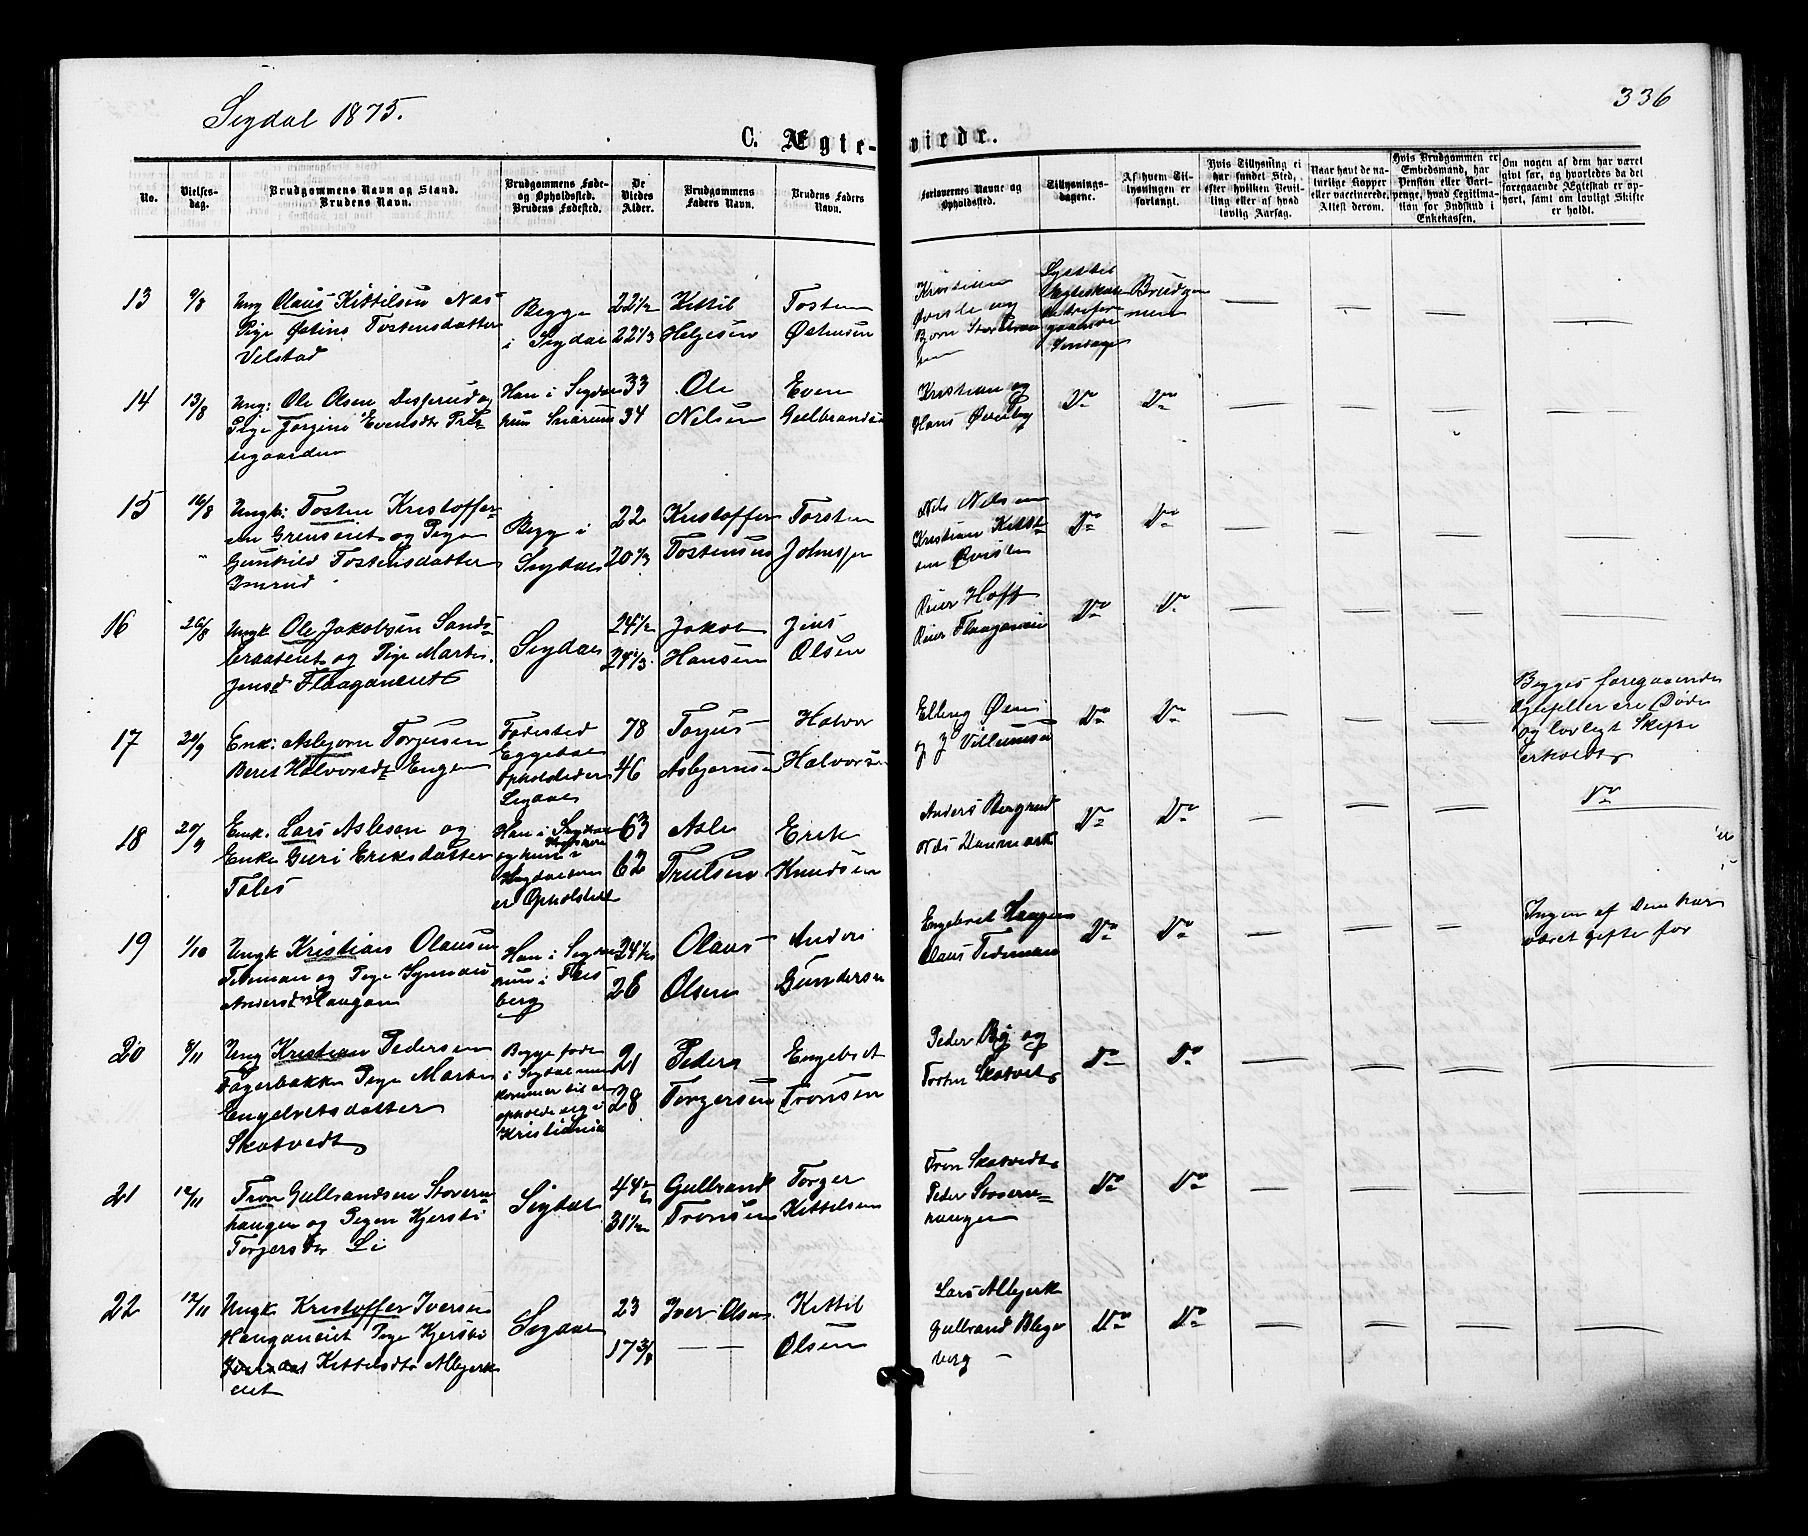 Sigdal 1875.
336
C. Ægte-viede.
No.
Vielses-dag.
Brudgommens Navn og Stand.
Brudens Navn.
Brudgommens Føde-
og Opholdssted.
Brudens Fødested.
De
Viedes
Alder.
Brudgommens
Faders Navn.
Brudens Faders
Navn.
Forlovernes Navne og
Opholdssted.
Tillysnings-
dagene.
Af hvem Til-
lysningen er
forlangt.
Hvis Tillysning ei
har fundet Sted,
efter hvilken Bevil-
ling eller af hvad
lovlig Aarsag.
Naar havt de na-
turlige Kopper
eller vaccinerede,
Attest derom.
Hvis Brudgommen er
Embedsmand, har
Pension eller Vart-
penge, hvad Legitima-
tion for Indskud i
Enkekassen.
Om nogen af dem har været
gift før, og hvorledes da det
foregaaende Ægteskab er op-
hørt, samt om lovligt Skifte
er holdt.
13 9/8
Ung Olaus Kittilsen Næs
Pige Østine Tostensdatter
Velstad
Begge
i Sigdal
22 1/2
22 1/3
Kittil
Helgesen
Tosten
Østensen
Kristian
og
Bjørn
Lyst til
Ægteskab
Brudgom
men
14 13/8
Ung: Ole Olsen og
Pige Jørgine Evensdtr
Han i Sigdal
hun Snarum
33
34
Ole
Nilsen
Even
Gulbrandsen
Kristian og
Hans Øverby
Do Do
15 16/8
Ungk: Tosten Kristoffer-
sen Grenseiet og Pige
Gunhild Tostensdatter
Imrud
Begge i
Sigdal
22
20 1/3
Kristoffer
Tostensen
Torsten
Nils Nilsen
Kristian Kittil
sen
Do Do
16 26/8
Ungk Ole Jakobsen Sands-
braateiet og Pige Marte
Jensd Flaaganeiet
Sigdal
24 1/2
24 1/3
Jakob
Hansen
Jens
Olsen
Reier Hoff
Reier Flaaganeie
Do Do
17 20/9
Enk: Asbjørn Torgusen
Beret Halvorsdt Engen
Fødested
Eggedal
Opholdsted
Sigdal
78
46
Torgus
Asbjørnsen
Halvor
Halvorsen
Elling Øen
og J Villumsen
Do Do
Begges foregaaende
Ægtefeller ere Døde
og lovligt Skifte
erholdt
18 20/9
Enk. Lars Aslesen og
Enke Guri Eriksdatter
Toles
Han i
og hun i
Sigdal som
er Opholdsted
63
62
Asle
Trulsen
Erik
Knudsen
Anders Bergerud
Nils Danmark
Do Do
Do
19 1/10
Ungk Kristian Olausen
Tideman og Pige
Andersdt Haugan
Han i Sigdal
hun i Fles
berg
24 1/2
26
Olaus
Olsen
Anders
Gundersen
Engebret Haugen
Olaus Tideman
Do Do
Ingen af Dem har
været gifte før
20 8/11
Ung Kristian Pedersen
Fagerbakke Pige Marte
Engebretsdatter
Skatvedt
Begge føde
i Sigdal men
kommer til at
opholde sig i
Kristiania
21
28
Peder
Torgersen
Engebret
Tronsen
Peder By og
Tosten Skatvet
Do Do
21 12/11
Tron Gulbrandsen Stoveren
haugen og Pigen Kjersti
Torgersdtr Li
Sigdal
44 1/2
31 1/2
Gulbrand
Tronsen
Torger
Kittilsen
Tron Skatvedt
Peder Stoveren
haugen
Do Do
22 12/11
Ungk Kristoffer Iversen
Hauganeiet Pige Kjersti
Kittilsdtr Albjerk
eiet
Sigdal
23
17 3/4
Iver Olsen
Kittil
Olsen
Lars Albjerk
Gulbrand Bleger
berg
Do Do